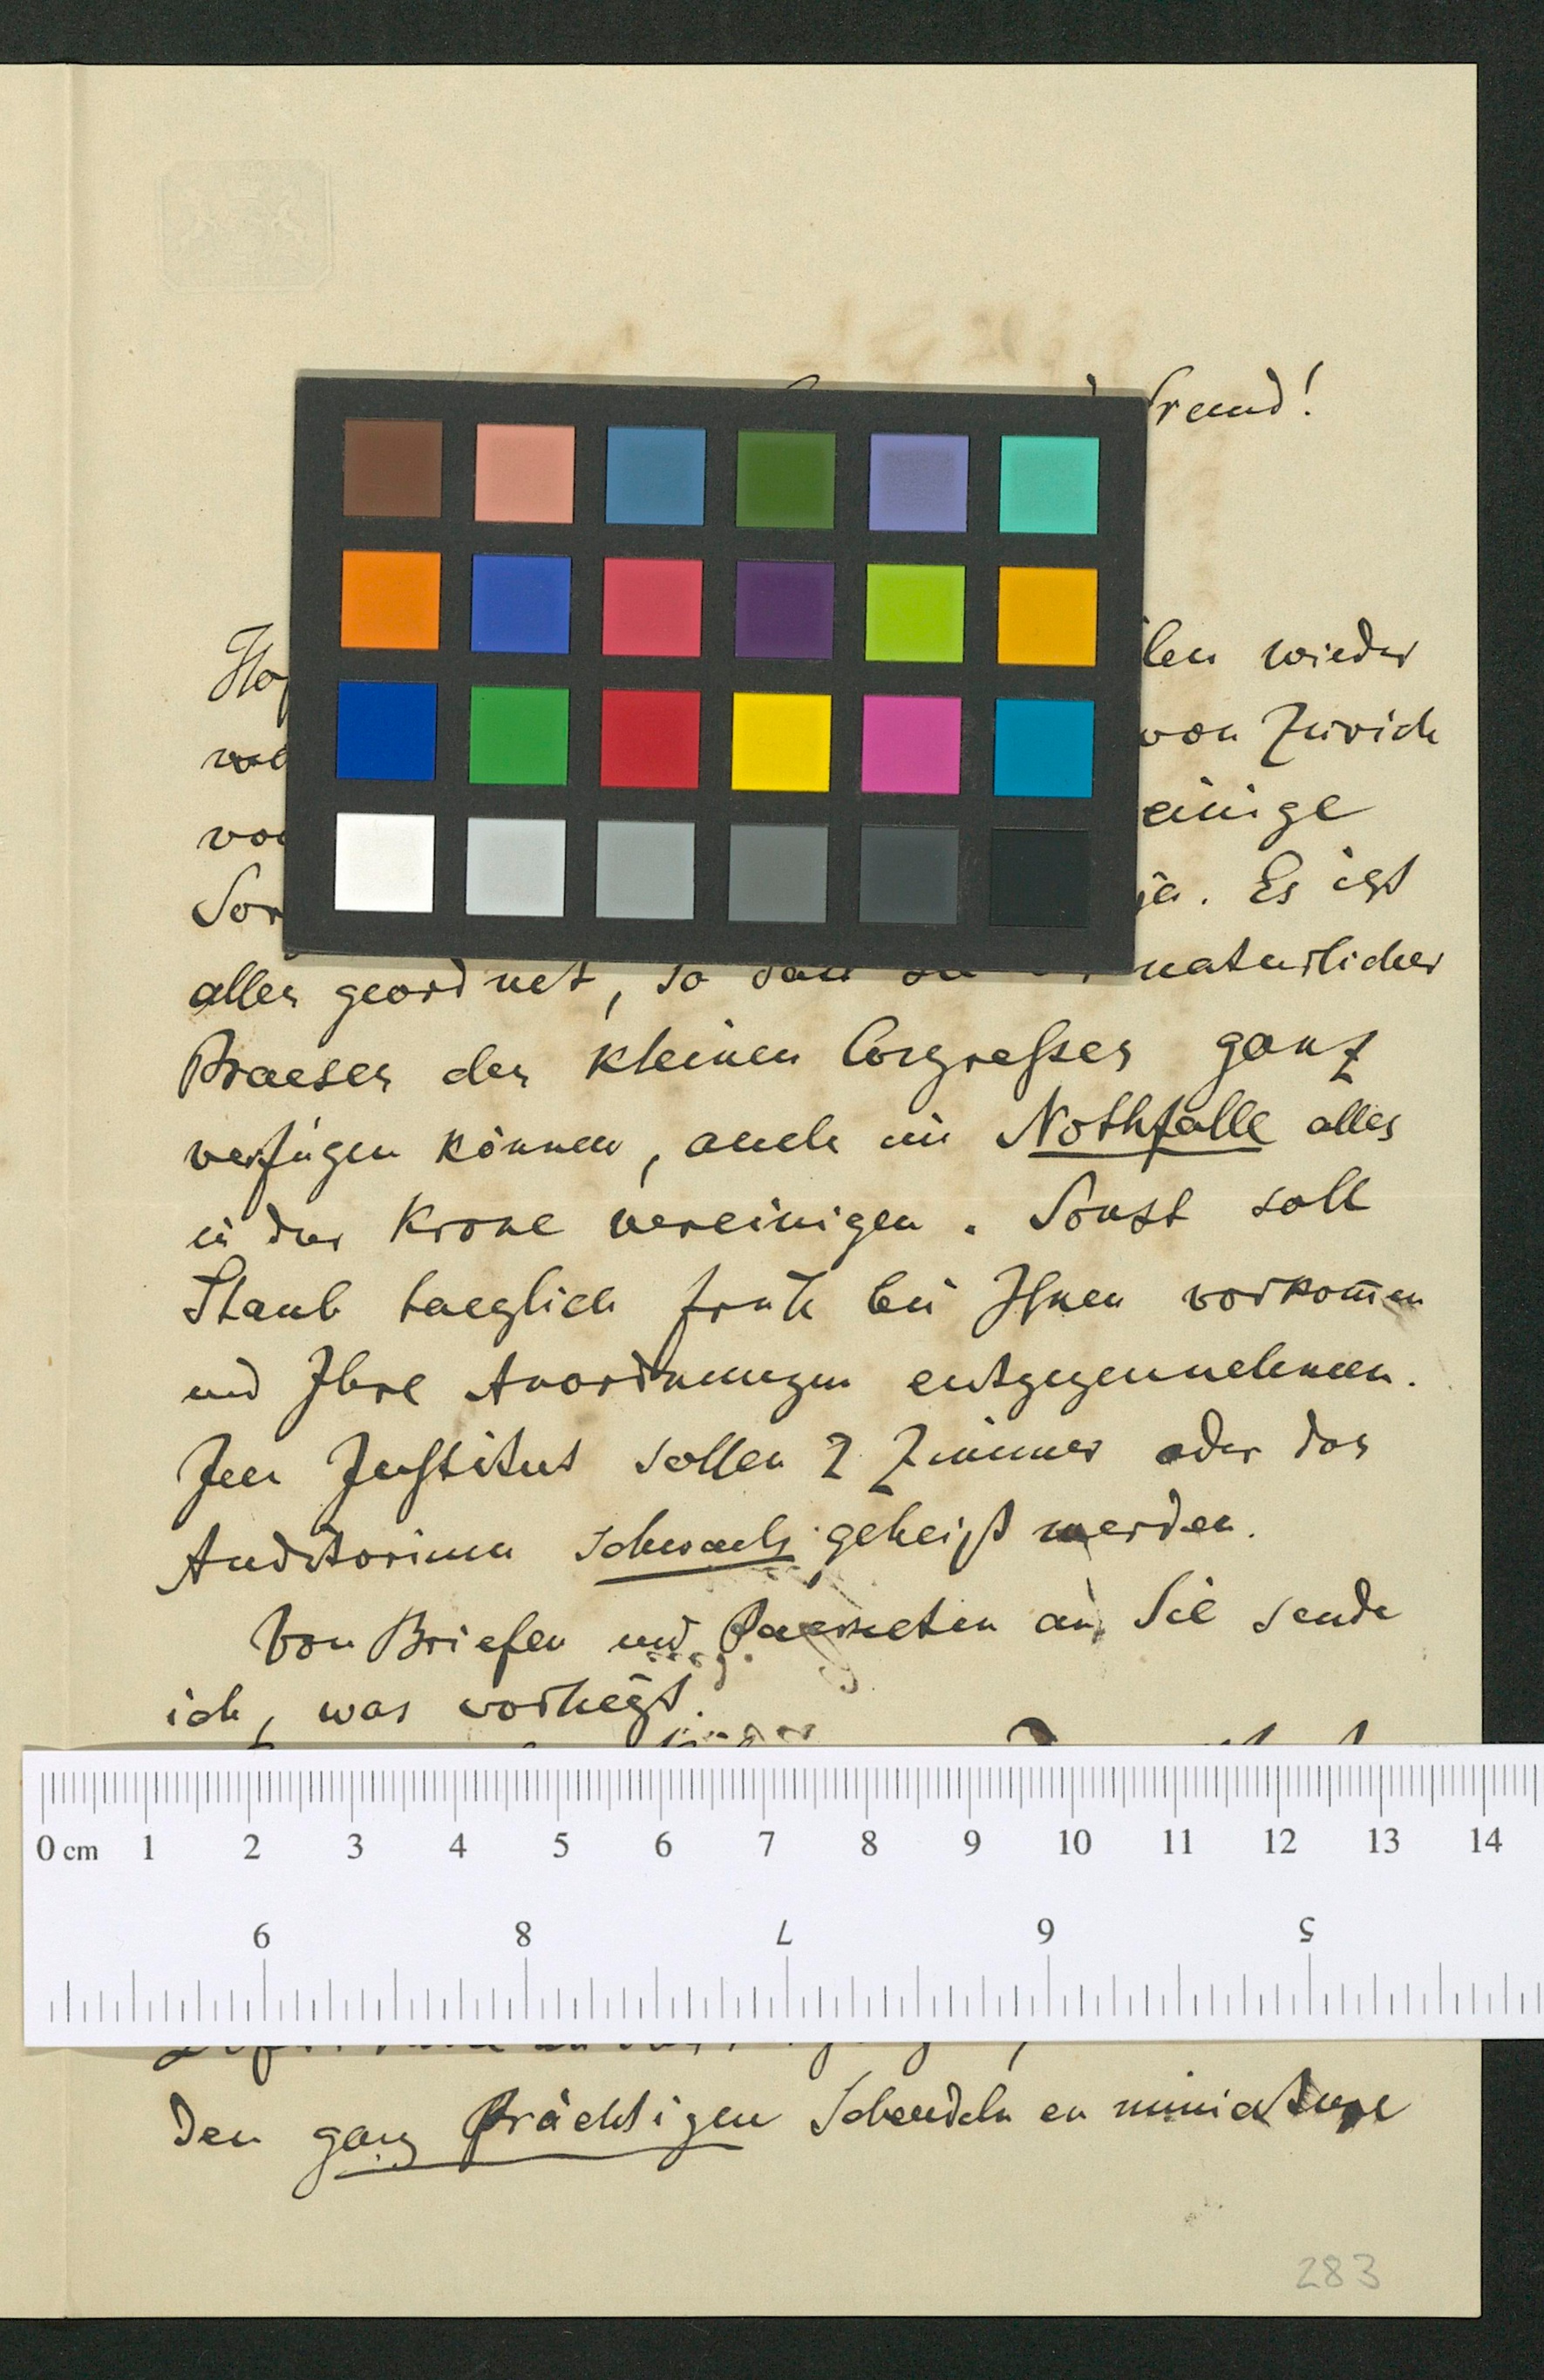 Freund!
len wieder
von Zürich
einige
ja. Es ist
alles geordnet, so natürlicher
Praeses des kleinen Congresses ganz
verfügen können, auch im Nothfalle alles
in der Krone vereinigen. Sonst soll
Staub taeglich früh bei Ihnen vorkom̅en
und Ihre Anordnungen entgegennehmen.
Im Institut sollen 2 Zimmer oder das
Auditorium schwach geheizt werden.
Von Briefen und Pacneten an Sie sende
ich, was vorliegt.
0 cm 1 2 3 4 5 6 7 8 9 10 11 12 13 14
9 8 7 6 5
den ganz prächtigen Schädeln en miniature
283